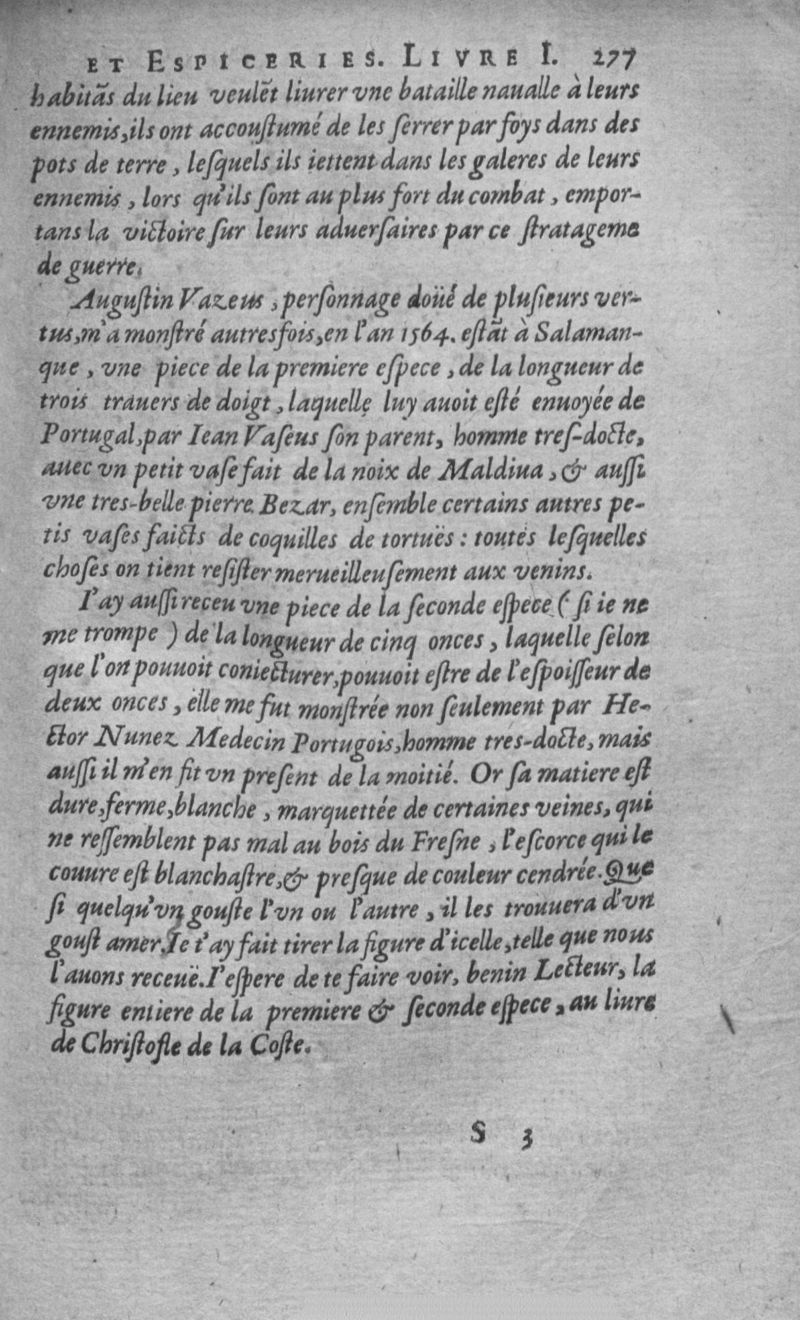 ET ESPICERIES. LIVRE I. 277
habitãs du lieu veulẽt liurer vne bataille naualle à leurs
ennemis,ils ont accouſtumé de les ſerrer par foys dans des
pots de terre, leſquels ils iettent dans les galeres de leurs
ennemis, lors qu'ils ſont au plus fort du combat, empor-
tans la victoire ſur leurs aduerſaires par ce ſtratageme
de guerre.
Auguſtin Vazeus, perſonnage doüé de pluſieurs ver-
tus,m'a monſtré autresfois,en l'an 1564. eſtãt à Salaman-
que, vne piece de la premiere eſpece, de la longueur de
trois trauers de doigt, laquelle luy auoit eſté enuoyée de
Portugal,par Iean Vaſeus ſon parent, homme treſ-docte,
auec vn petit vaſe fait de la noix de Maldiua, & auſſi
vne tres-belle pierre Bezar, enſemble certains autres pe-
tis vaſes faicts de coquilles de tortuës : toutes leſquelles
choſes on tient reſiſter merueilleuſement aux venins.
I'ay auſſi receu vne piece de la ſeconde eſpece ( ſi ie ne
me trompe ) de la longueur de cinq onces, laquelle ſelon
que l'on pouuoit coniecturer,pouuoit eſtre de l'eſpoiſſeur de
deux onces, elle me fut monſtrée non ſeulement par He-
ctor Nunez Medecin Portugois,homme tres-docte, mais
auſſi il m'en fit vn preſent de la moitié. Or ſa matiere eſt
dure,ferme,blanche, marquettée de certaines veines, qui
ne reſſemblent pas mal au bois du Freſne, l'eſcorce qui le
couure eſt blanchaſtre,& preſque de couleur cendrée. Que
ſi quelqu'vn gouſte l'vn ou l'autre, il les trouuera d'vn
gouſt amer.Ie t'ay fait tirer la figure d'icelle,telle que nous
l'auons receuë.I'eſpere de te faire voir, benin Lecteur, la
figure entiere de la premiere & ſeconde eſpece, au liure
de Chriſtofle de la Coſte.
S 3